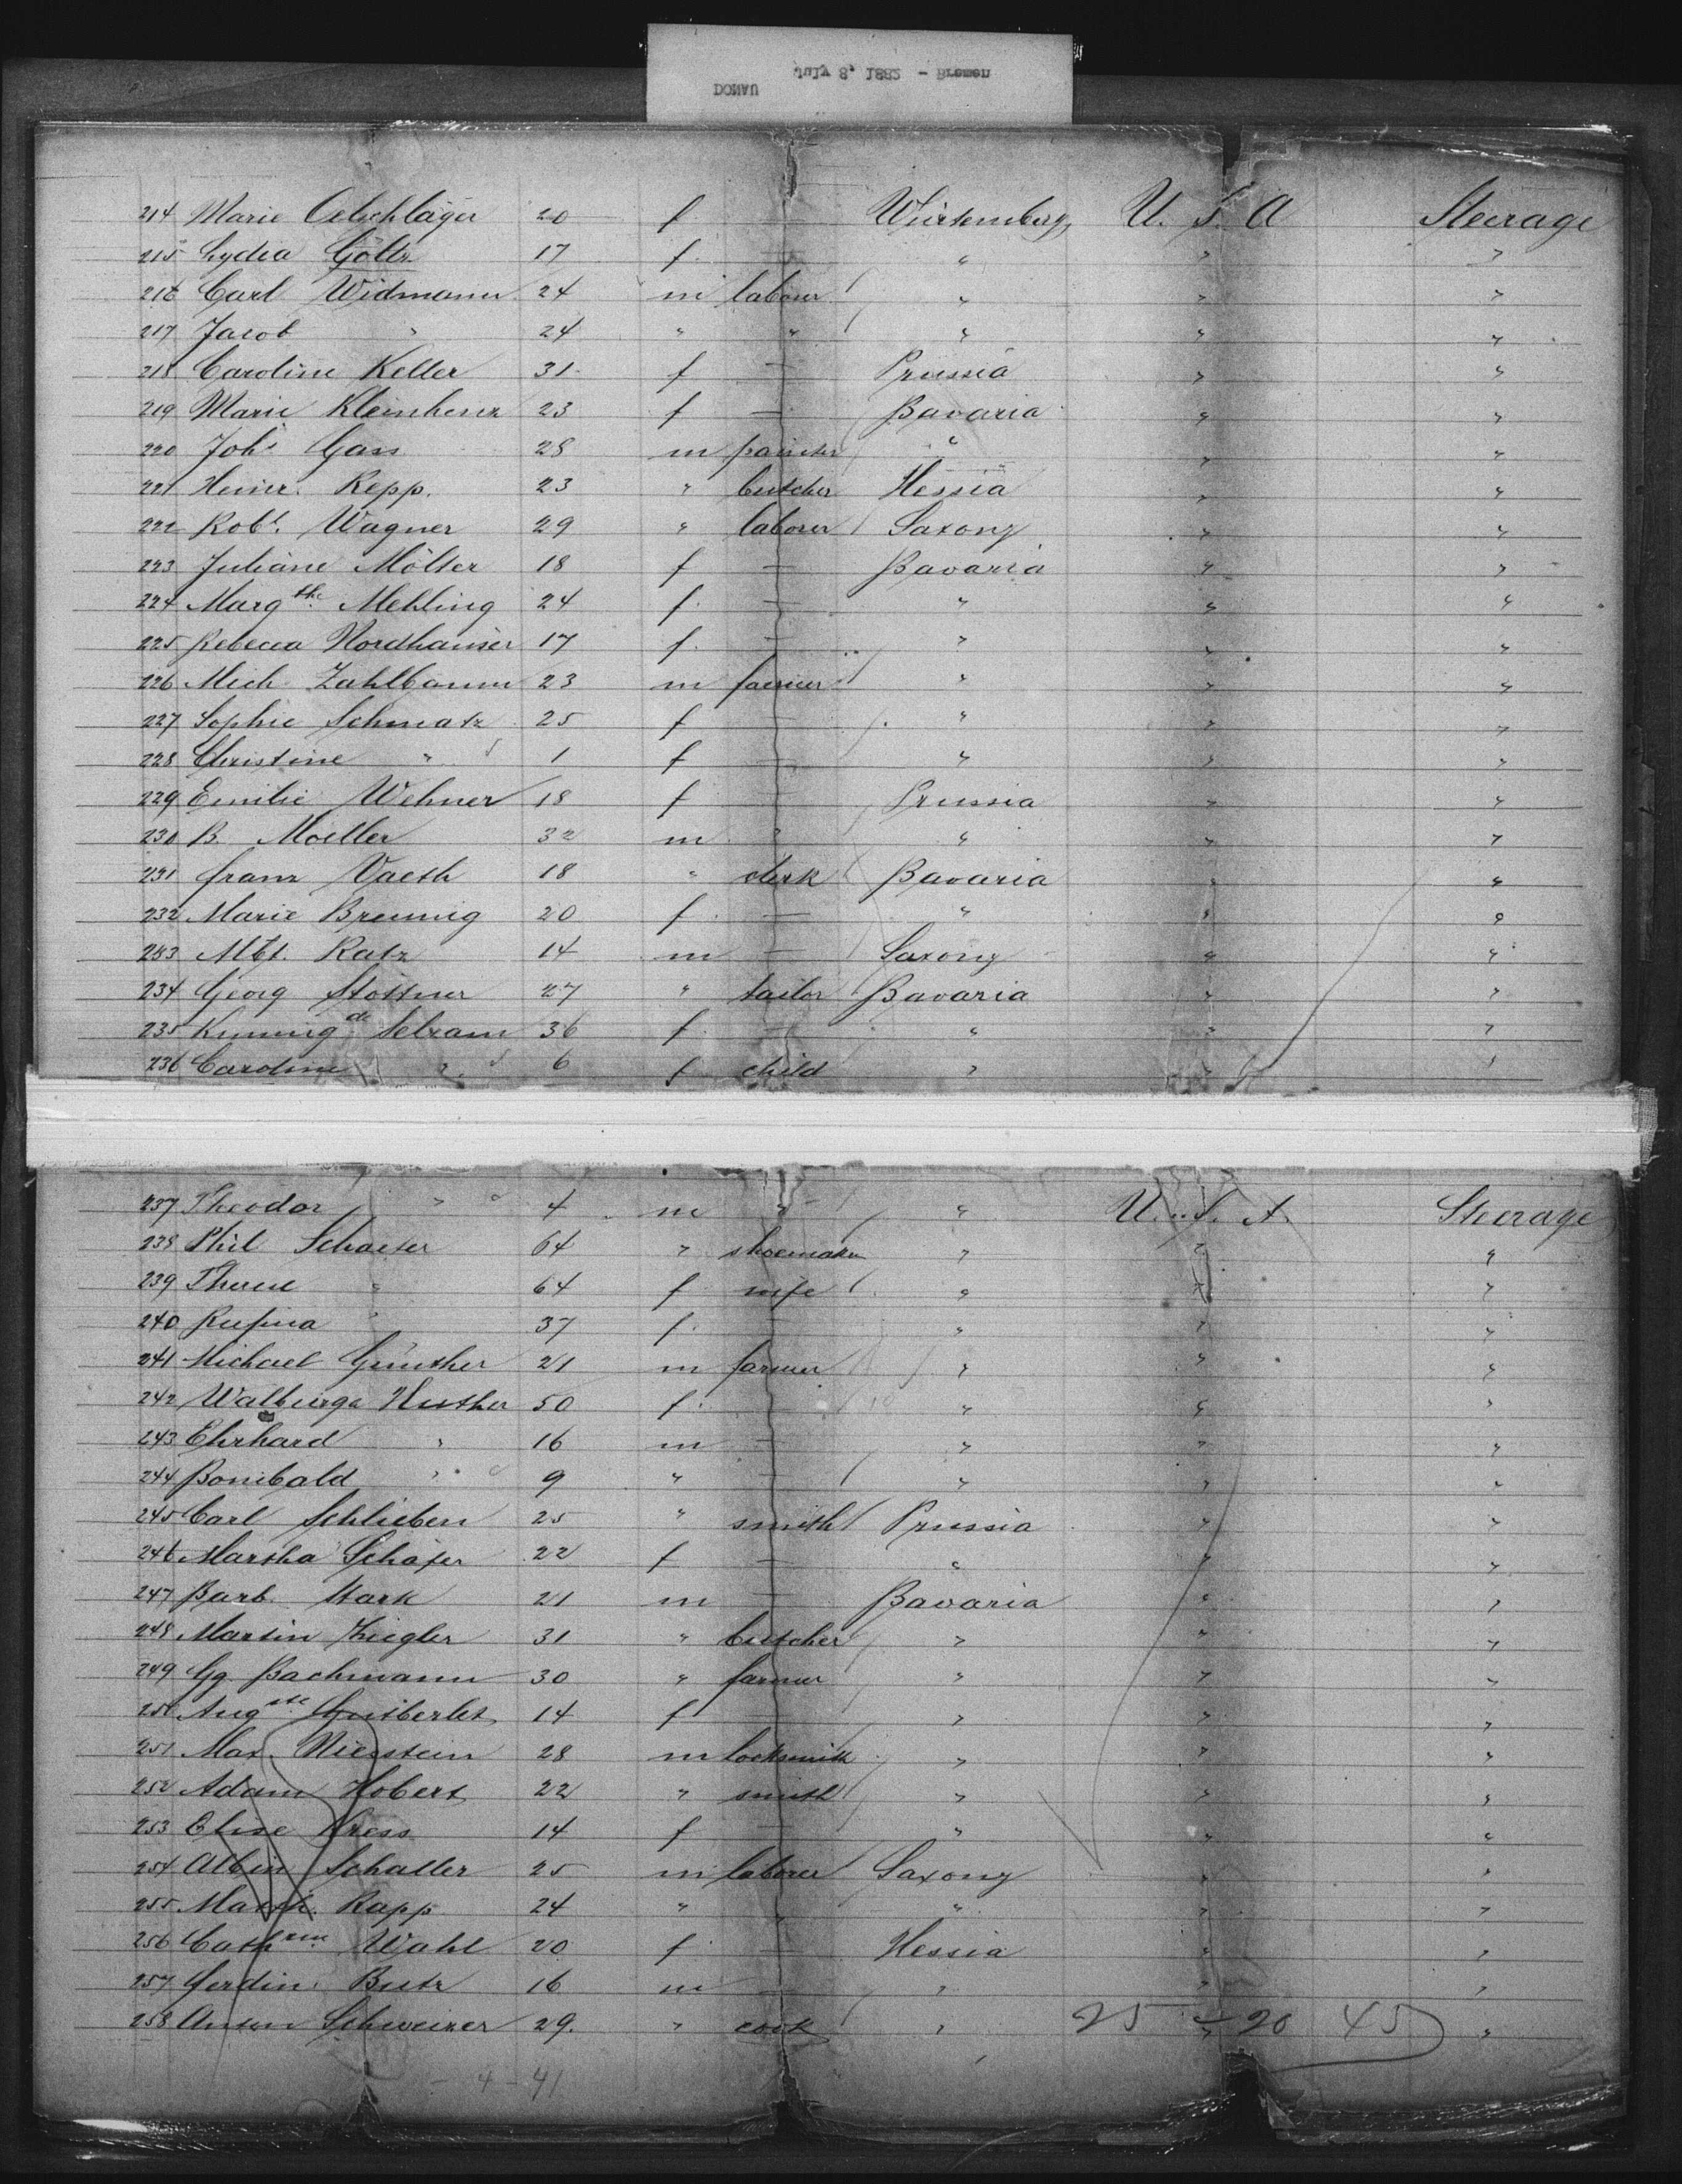 DONAU July 8, 1882 - Bremen
214 Marie Oelschläger 20 f — Würtemberg U. S. A Steerage
215 Lydia Göltz 17 f. — " " "
216 Carl Widmann 24 m labour " " "
217 Jacob " 24 " " " " "
218 Caroline Keller 31 f — Prussia " "
219 Marie Kleinhenz 23 f — Bavaria " "
220 Johs Gass 28 m painter " " "
221 Heinr. Repp. 23 " butcher Hessia " "
222 Robt. Wagner 29 " laborer Saxony " "
223 Juliane Mölter 18 f — Bavaria " "
224 Margthe Mehling 24 f. — " " "
225 Rebecca Nordhauser 17 f. — " " "
226 Mich Zahlbaum 23 m farmer " " "
227 Sophie Schmatz 25 f — " " "
228 Christine " 1 f — " " "
229 Emilie Wehner 18 f — Prussia " "
230 B. Moeller 32 m " " " "
231 Franz Vaeth 18 " clerk Bavaria " "
232 Marie Breunig 20 f. — " " "
233 Albt. Katz 14 m — Saxony " "
234 Georg Stottner 27 " tailor Bavaria " "
235 Kunnigde Selzam 36 f. — " " "
236 Caroline " 6 f child " " "
237 Theodor " 4 m " " U. S. A. Steerage
238 Phil Schaefer 64 " shoemaker " " "
239 Therese " 64 f wife " " "
240 Rufina " 37 f. " " "
241 Michael Günther 21 m farmer " " "
242 Walburga Huther 50 f. — " " "
243 Ehrhard " 16 m — " " "
244 Bonibald " 9 " — " " "
245 Carl Schlieben 25 " smith Prussia " "
246 Martha Schäfer 22 f — " " "
247 Barb. Stark 21 m — Bavaria " "
248 Martin Ziegler 31 " butcher " " "
249 Gg. Bachmann 30 " farmer " " "
250 Augste Gutberlet 14 f — " " "
251 Max. Nierstein 28 m locksmith " " "
252 Adam Hobert 22 " smith " " "
253 Elise Kress 14 f — " " "
254 Albin Schaller 25 m laborer Saxony " "
255 Math. Rapp 24 " " " " "
256 Cathrine Wahl 20 f. — Hessia " "
257 Ferdin. Butz 16 m — " " "
258 Anton Schweizer 29. " cook " " "
25 20 45
- 4 - 41